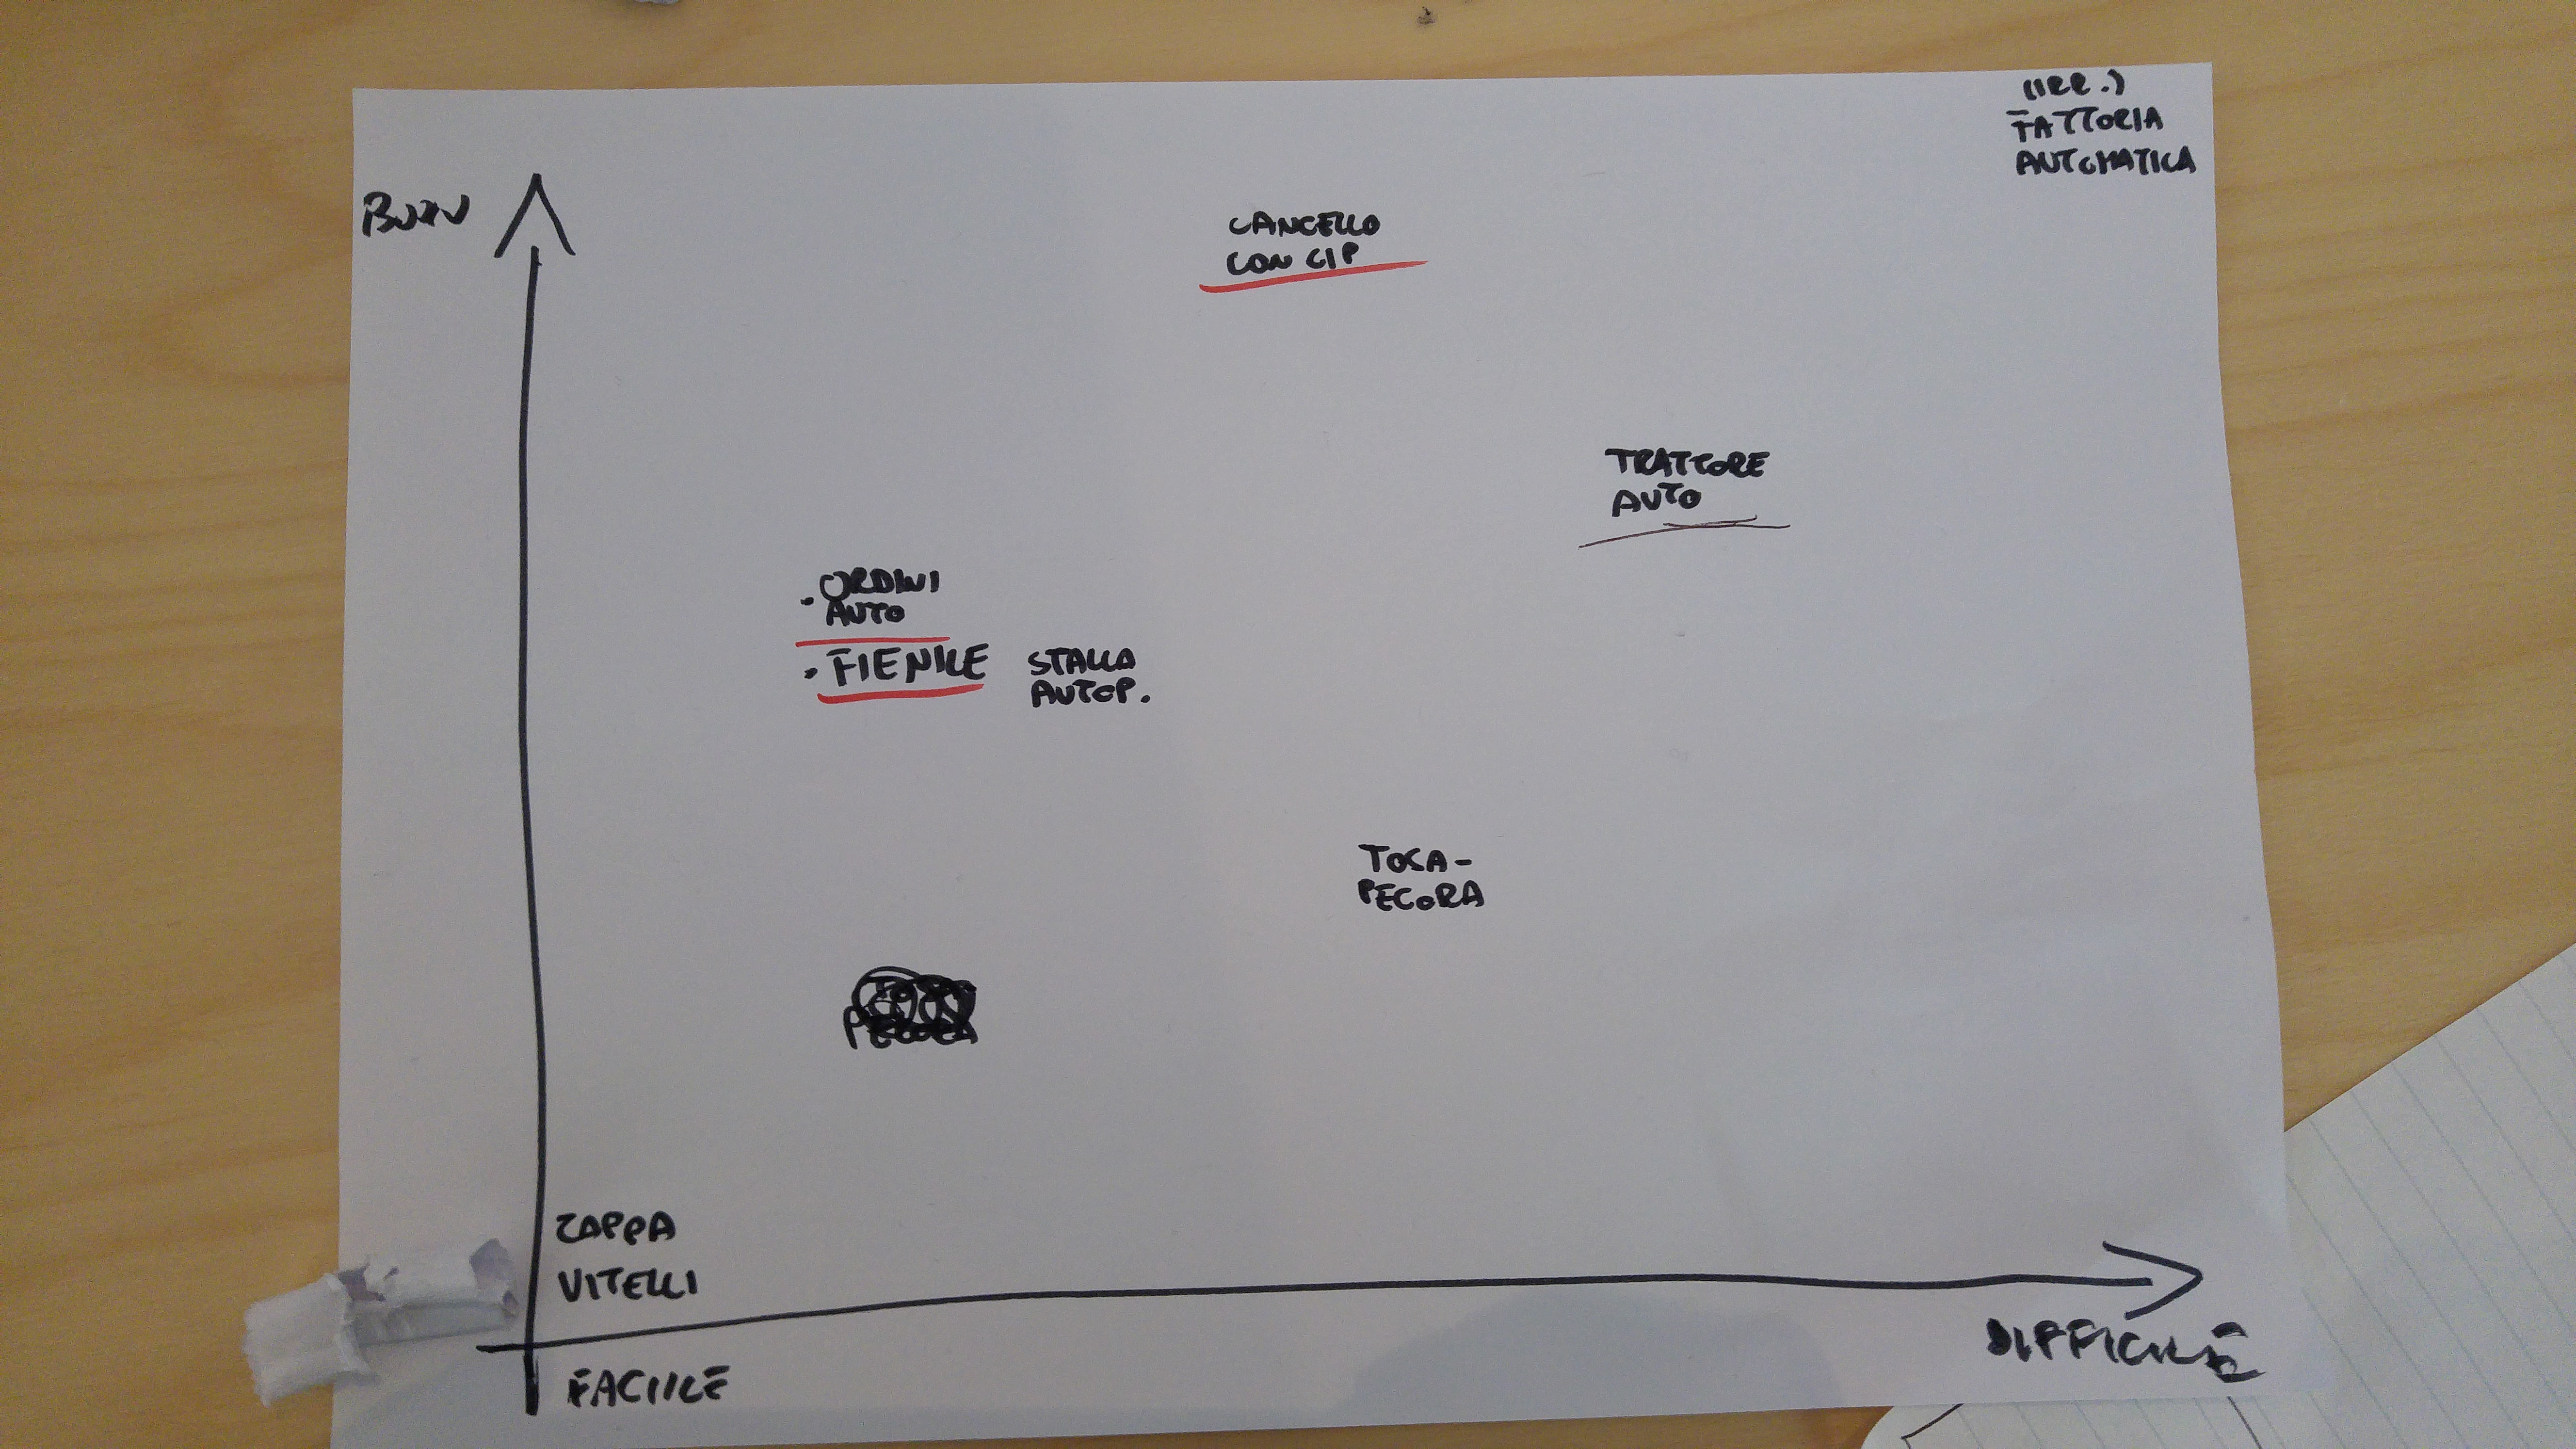 (IRR.)
FATTORIA
AUTOMATICA
CANCELLO
CON CIP
TRATTORE
AUTO
. ORDINI
AUTO
. FIENILE
STALLA
AUTOP.
TOSA-
PECORA
PECORA
ZAPPA
VITELLI
FACILE
DIFFICILE